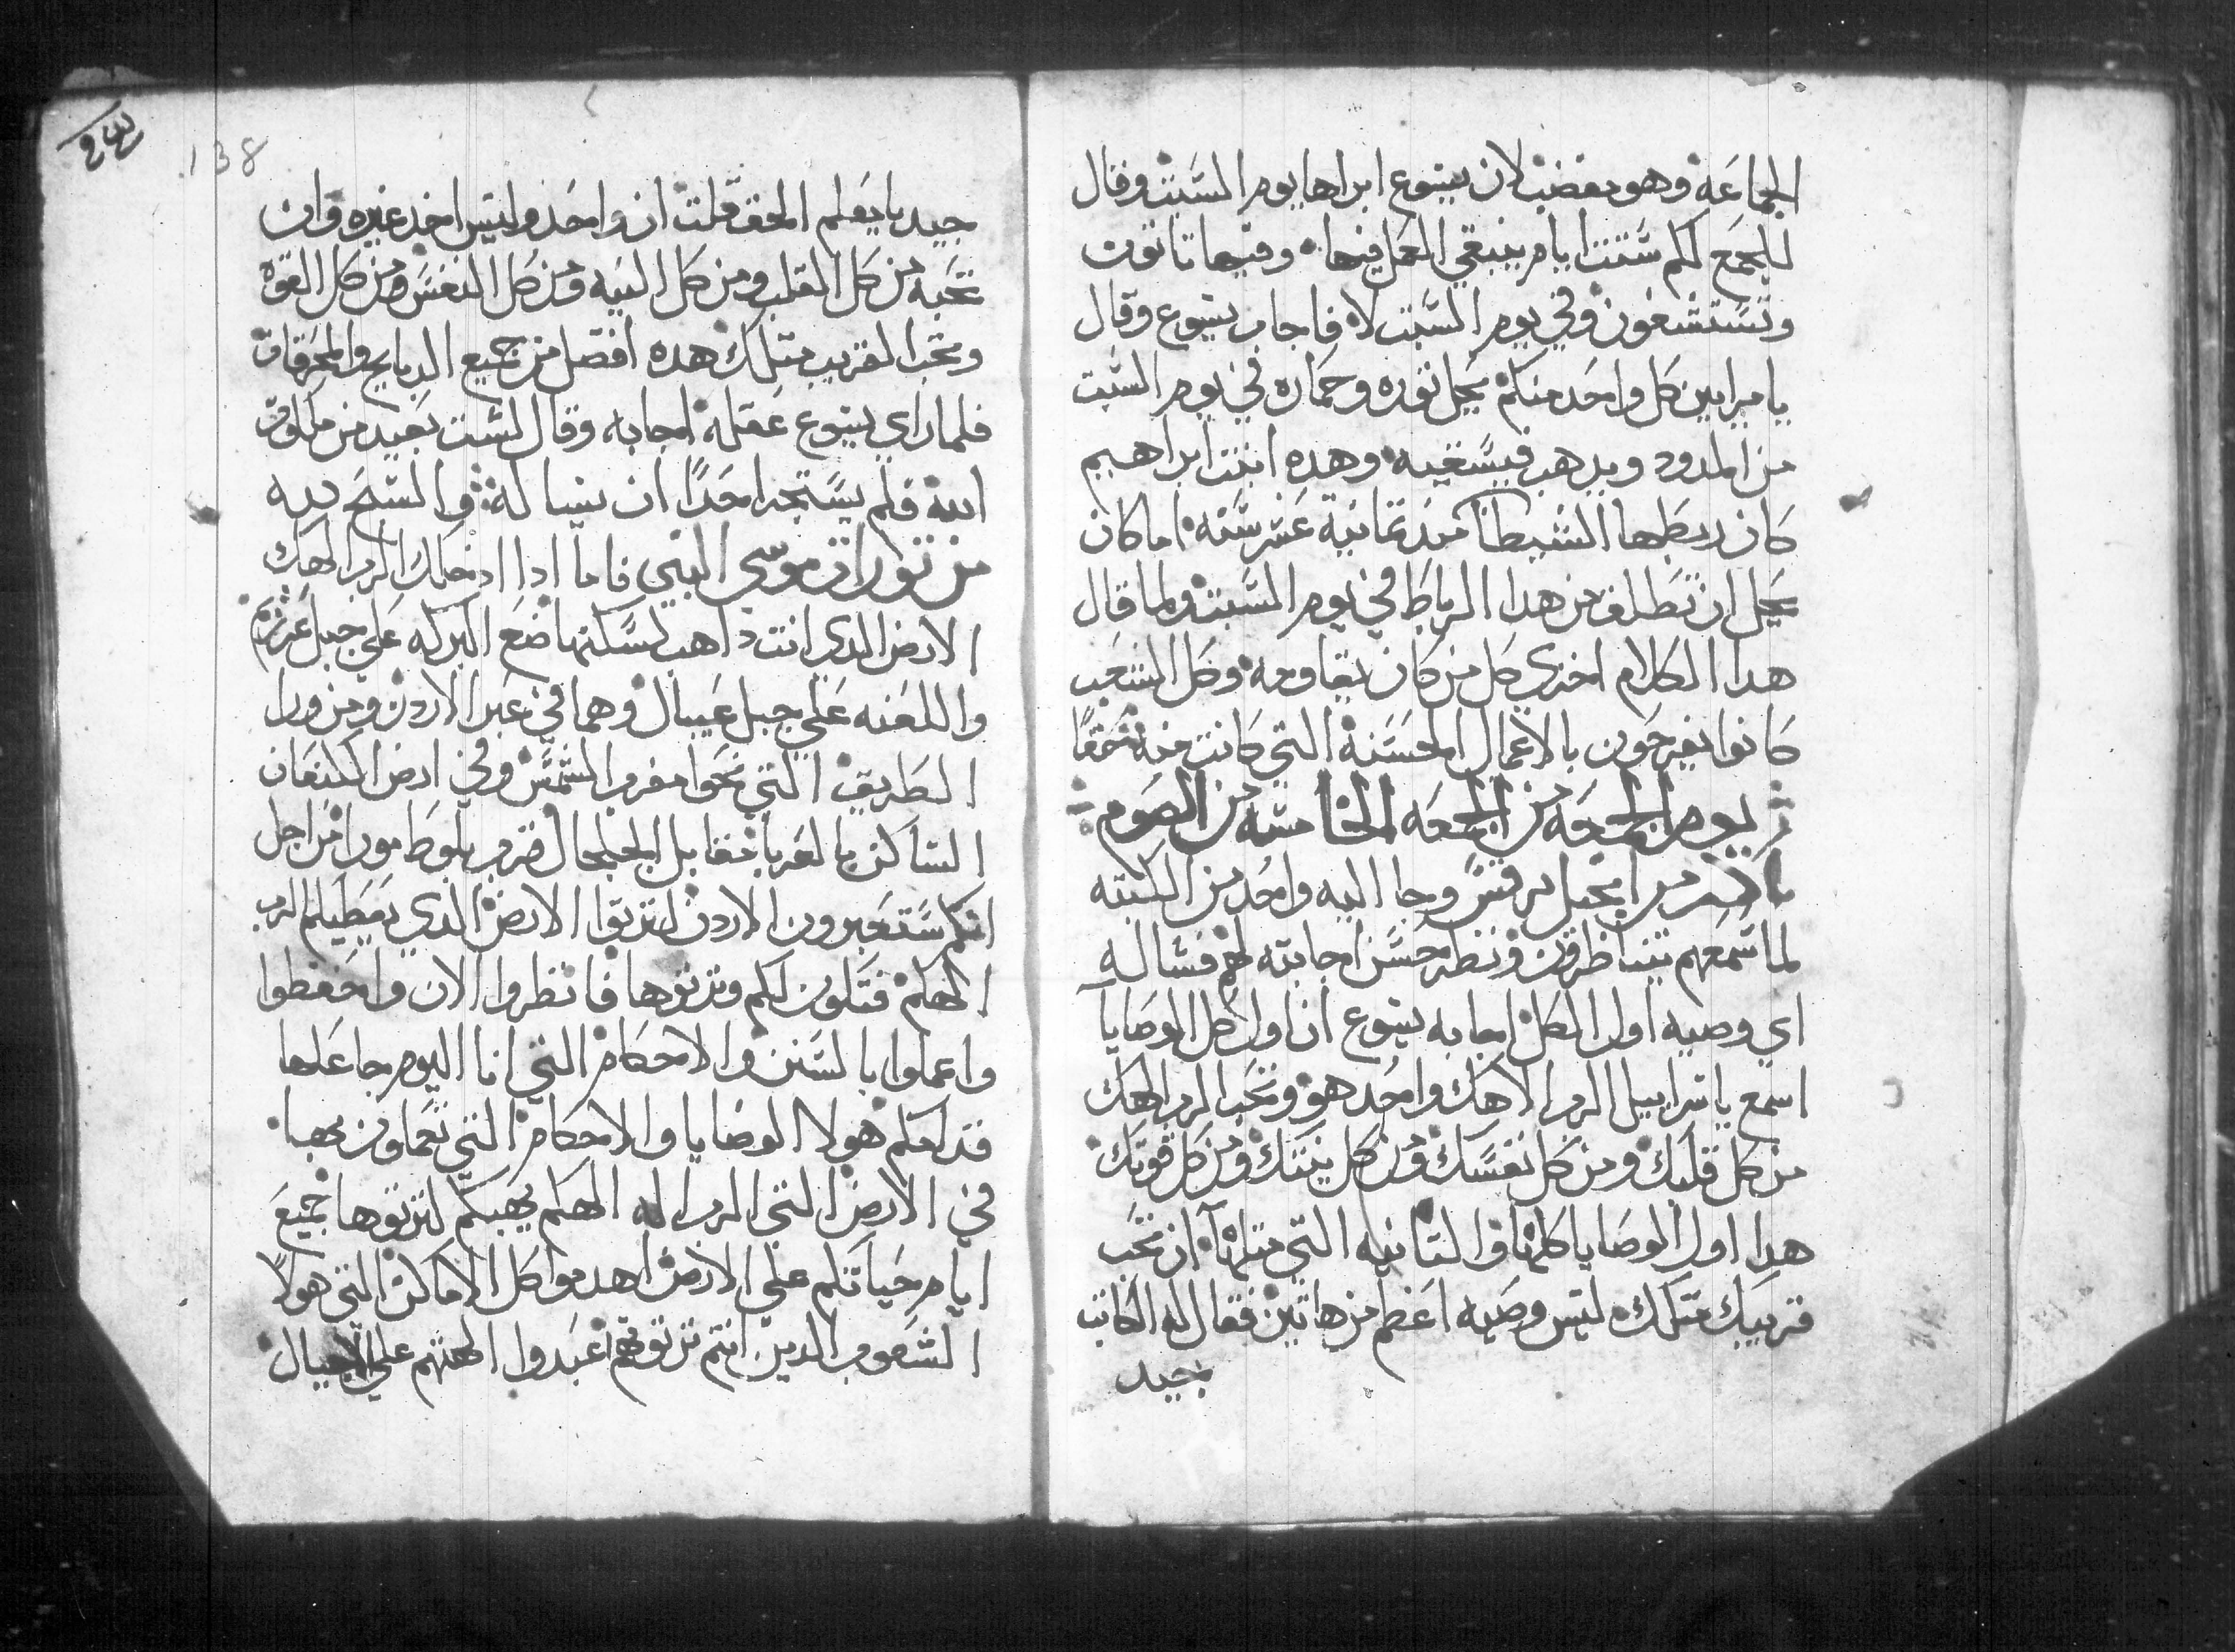 الجماعه وهو مغضب لان يسوع ابراها يوم السبت وقال
للجمع لكم ستت ايام ينبغي العمل فيها وفيها تاتون
وتستشفون وفي يوم السبت لا فاجاب يسوع وقال
يا مرايين كل واحد منكم يحل ثوره وحماره في يوم السبت
من المدود ويدهب فيسقيه وهده ابنت ابراهيم
كان ربطها الشيطان مند ثمانية عشر سنه اما كان
يحل ان تطلق من هدا الرباط في يوم السبت ولما قال
هدا الكلام اخزي كل من كان يقاومه وكل الشعب
كانوا يفرحون بالاعمال الحسنة التي كانت منه حقا
يوم الجمعه من الجمعه الخامسه من الصوم
باكر من انجيل مرقس وجا اليه واحد من الكتبه
لما سمعهم يتناظرون ونظر حسن اجابته لهم فساله
اي وصيه اول الكل اجابه يسوع ان اول كل الوصايا
اسمع ياسراييل الرب الاهك واحد هو وتحب الرب الهك
من كل قلبك ومن كل نفسك ومن كل نيتك ومن كل قوتك
هدا اول الوصايا كلها والثانيه التي مثلها ان تحب
قريبك مثلك ليس وصيه اعظم من هاتين فقال له الكاتب
جيد
138
جيد يا معلم الحق قلت ان واحد وليس اخر غيره وان
تحبه من كل القلب ومن كل النيه ومن كل النفس ومن كل القوه
وتحب القريب مثلك هده افضل من جميع الدبايح والمحرقات
فلما راي يسوع عقله اجابه وقال لست بعيد من ملكوت
الله فلم يستجر احدا ان يساله والسبح لله
من توراة موسي النبي فاما ادا ادخلك الرب الهك
الارض الدي انت داهب لتسكنها ضع البركه علي جبل غرزيم
واللعنه علي جبل عيبال وهما في عبر الاردن ومن ورا
الطريق التي نحوا مغرب الشمس وفي ارض الكنعان
الساكن بالغرب مقابل الجلجال قرب بلوط مورا من اجل
انكم ستعبرون الاردن لترتوا الارض الدي يعطيكم الرب
الهكم فتكون لكم وترثوها فانظروا الان واحفظوا
واعملوا بالسنن والاحكام التي انا اليوم جاعلها
قدامكم هولا الوصايا والاحكام التي تعملون بهبا
في الارض التي الرب اله الهكم يهبكم لترثوها جميع
ايام حياتكم علي الارض اهدموا كل الاماكن التي هولا
الشعوب الدين انتم ترثوهم عبدوا الهتهم علي الاجبال